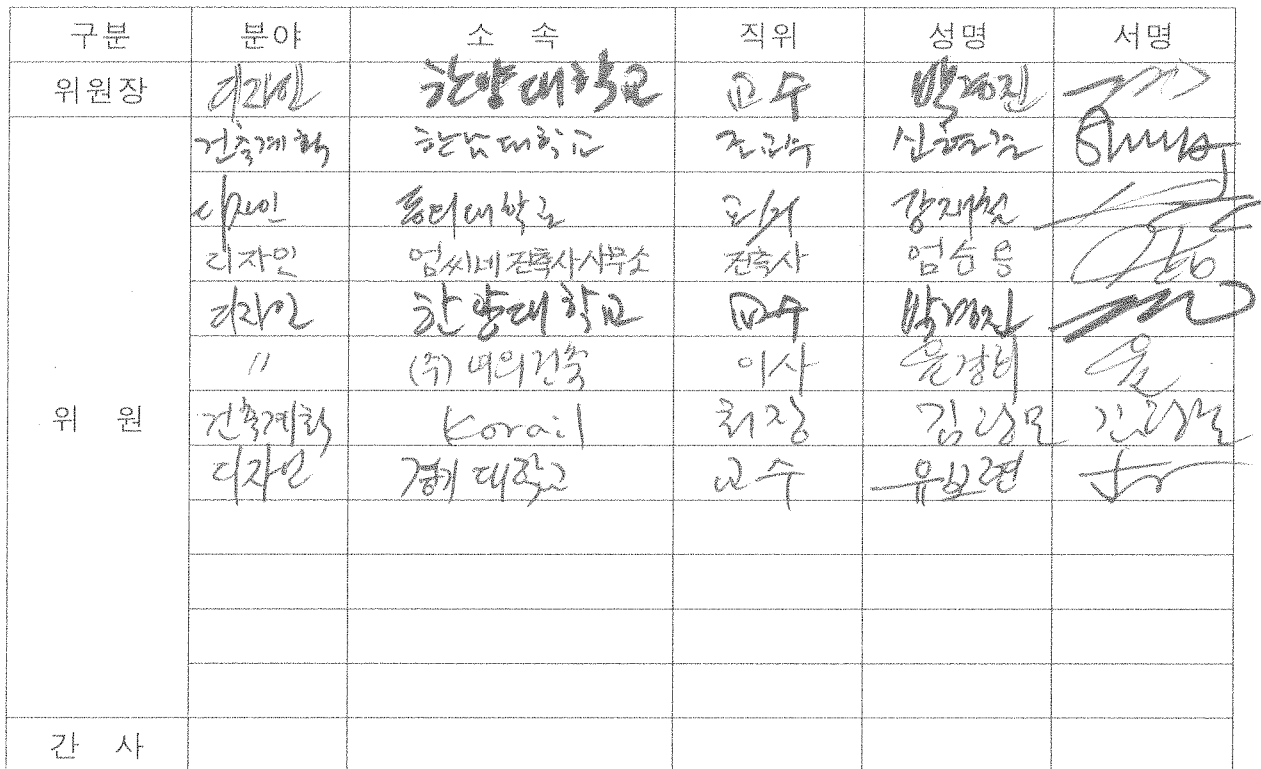 구분 분야 소 속 직위 성명 서명
위원장 디자인 한양대학교 교수 박경진
건축계획 한남대학교 조교수
디자인 동의대학교 교수 강재철
디자인 엄씨네건축사사무소 건축사 엄승용
디자인 한양대학교 교수 박경진
〃 (주)여의건축 이사 윤경희 윤
위 원 건축계획 Korail 처장
디자인 경기대학교 교수
간 사